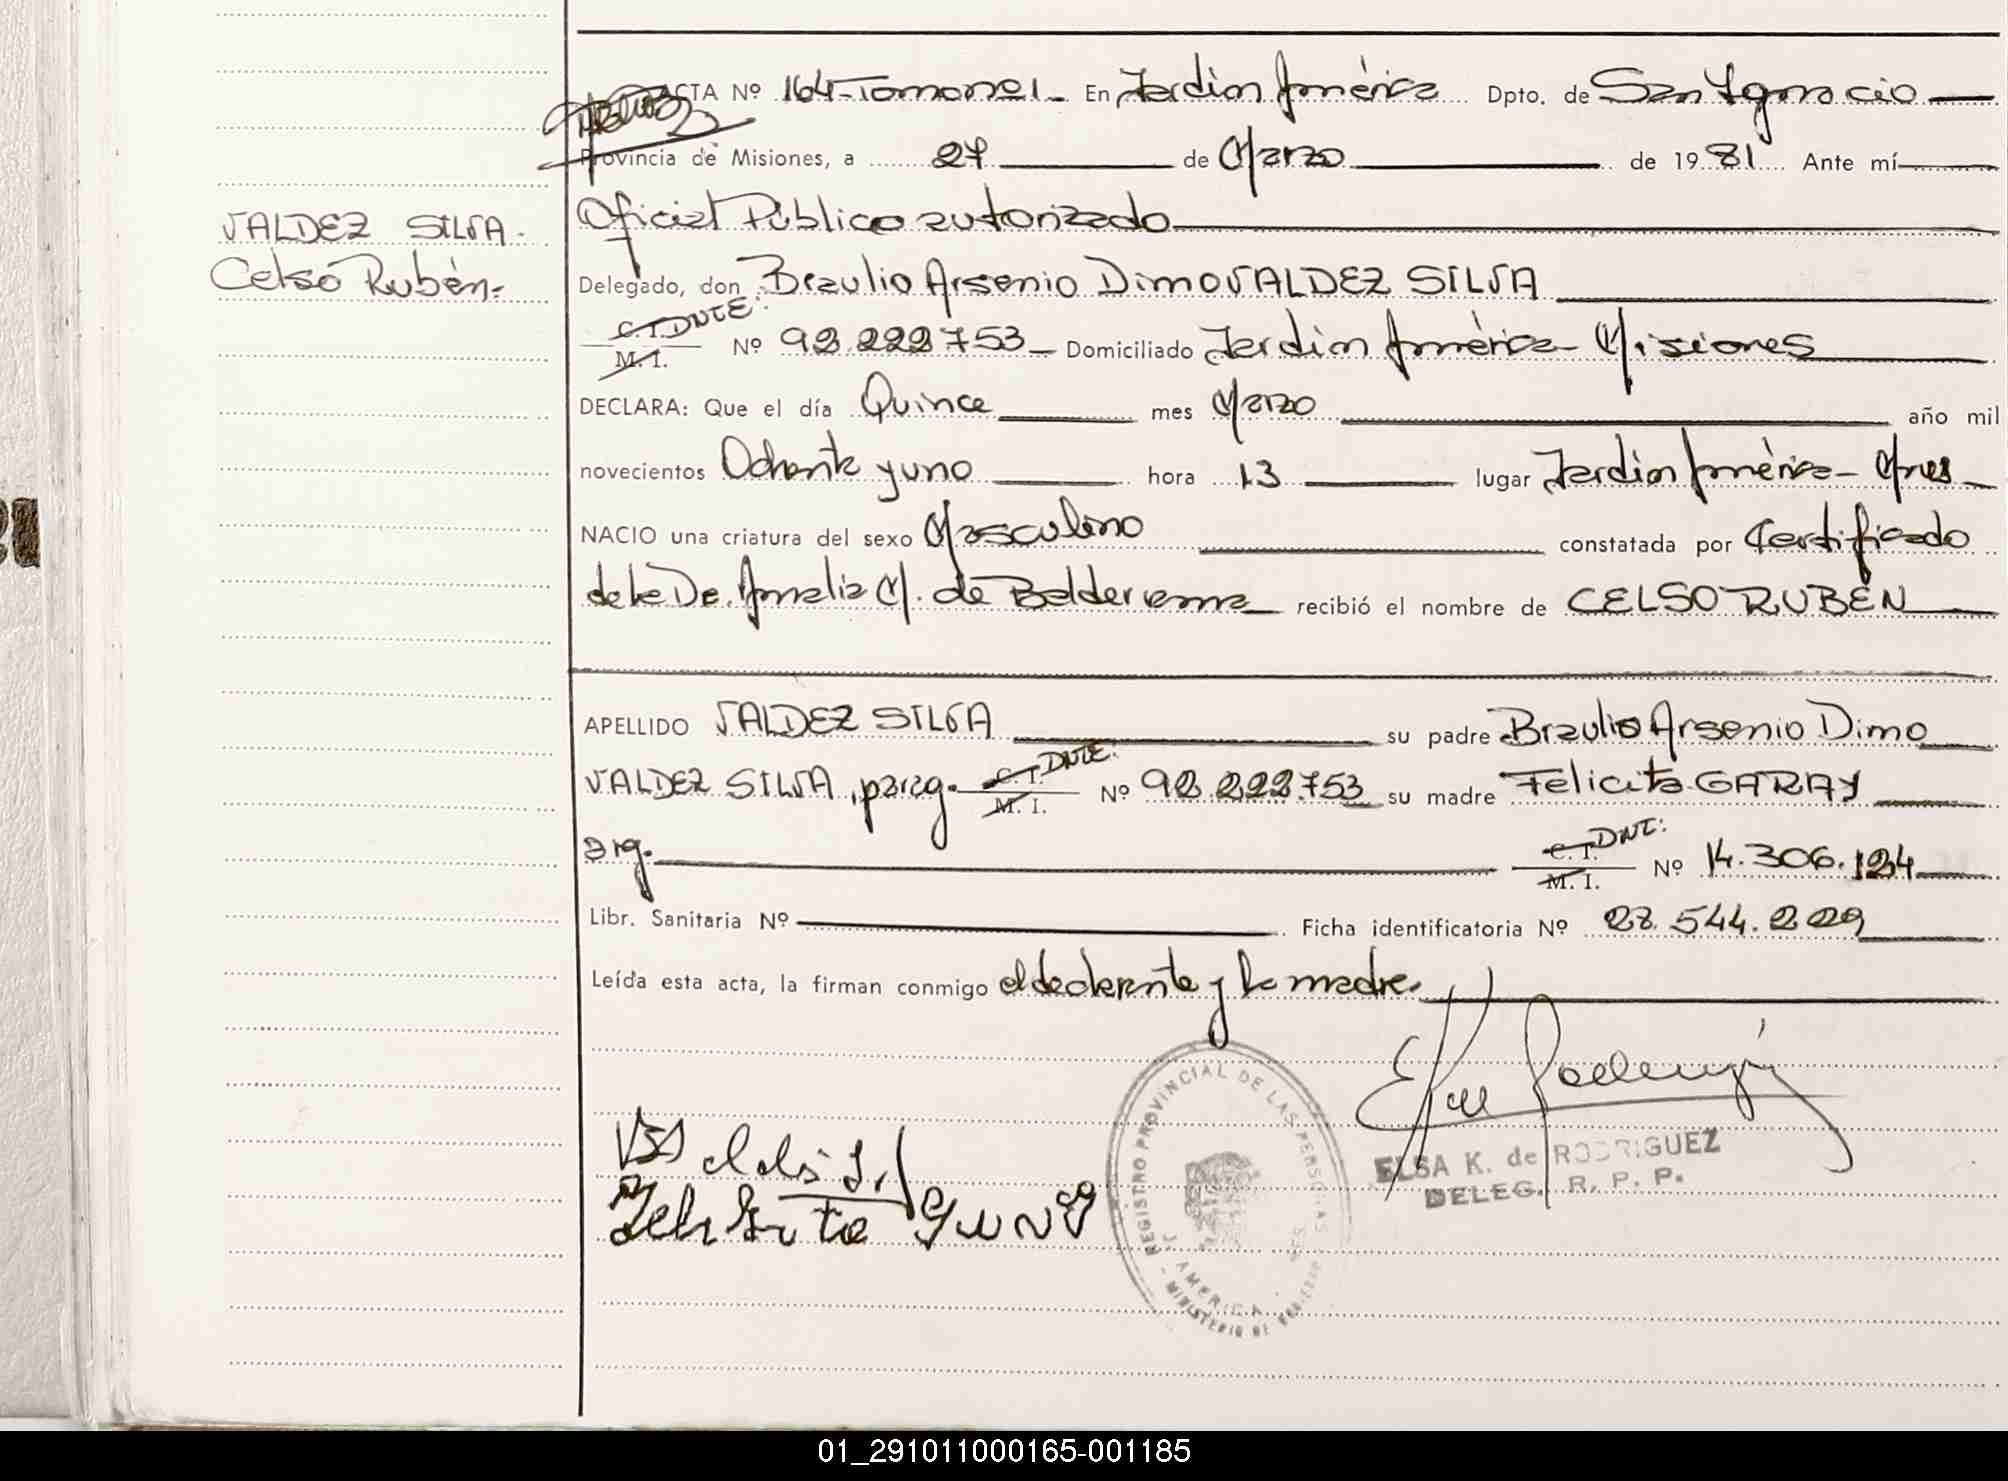 ACTA Nº 164-Tomo nº1- En Jardín América Dpto. de San Ignacio
Provincia de Misiones, a 27 de Marzo de 1981 Ante mí
VALDEZ SILVA.
Celso Rubén.
Oficial Público autorizado
Delegado, don Braulio Arsenio Dimo VALDEZ SILVA
C.I. DNIE:
M. I. Nº 92.222.753 Domiciliado Jardín América - Misiones
DECLARA: Que el día Quince mes Marzo año mil
novecientos Ochenta y uno hora 13 lugar Jardín América - Mnes
NACIO una criatura del sexo Masculino constatada por Certificado
de la Dra. Amelia M. de Balderrama recibió el nombre de CELSO RUBÉN
APELLIDO VALDEZ SILVA su padre Braulio Arsenio Dimo
VALDEZ SILVA, parag. C.I. DNIE: M. I. Nº 92.222.753 su madre Felicita GARAY
arg. C. I. DNI: M. I. Nº 14.306.124
Libr. Sanitaria Nº Ficha identificatoria Nº 28.544.229
Leída esta acta, la firman conmigo el declarante y la madre.
REGISTRO PROVINCIAL DE LAS PERSONAS
AMERICA
MINISTERIO DE
ELSA K. de RODRIGUEZ
DELEG. R. P. P.
01_291011000165-001185